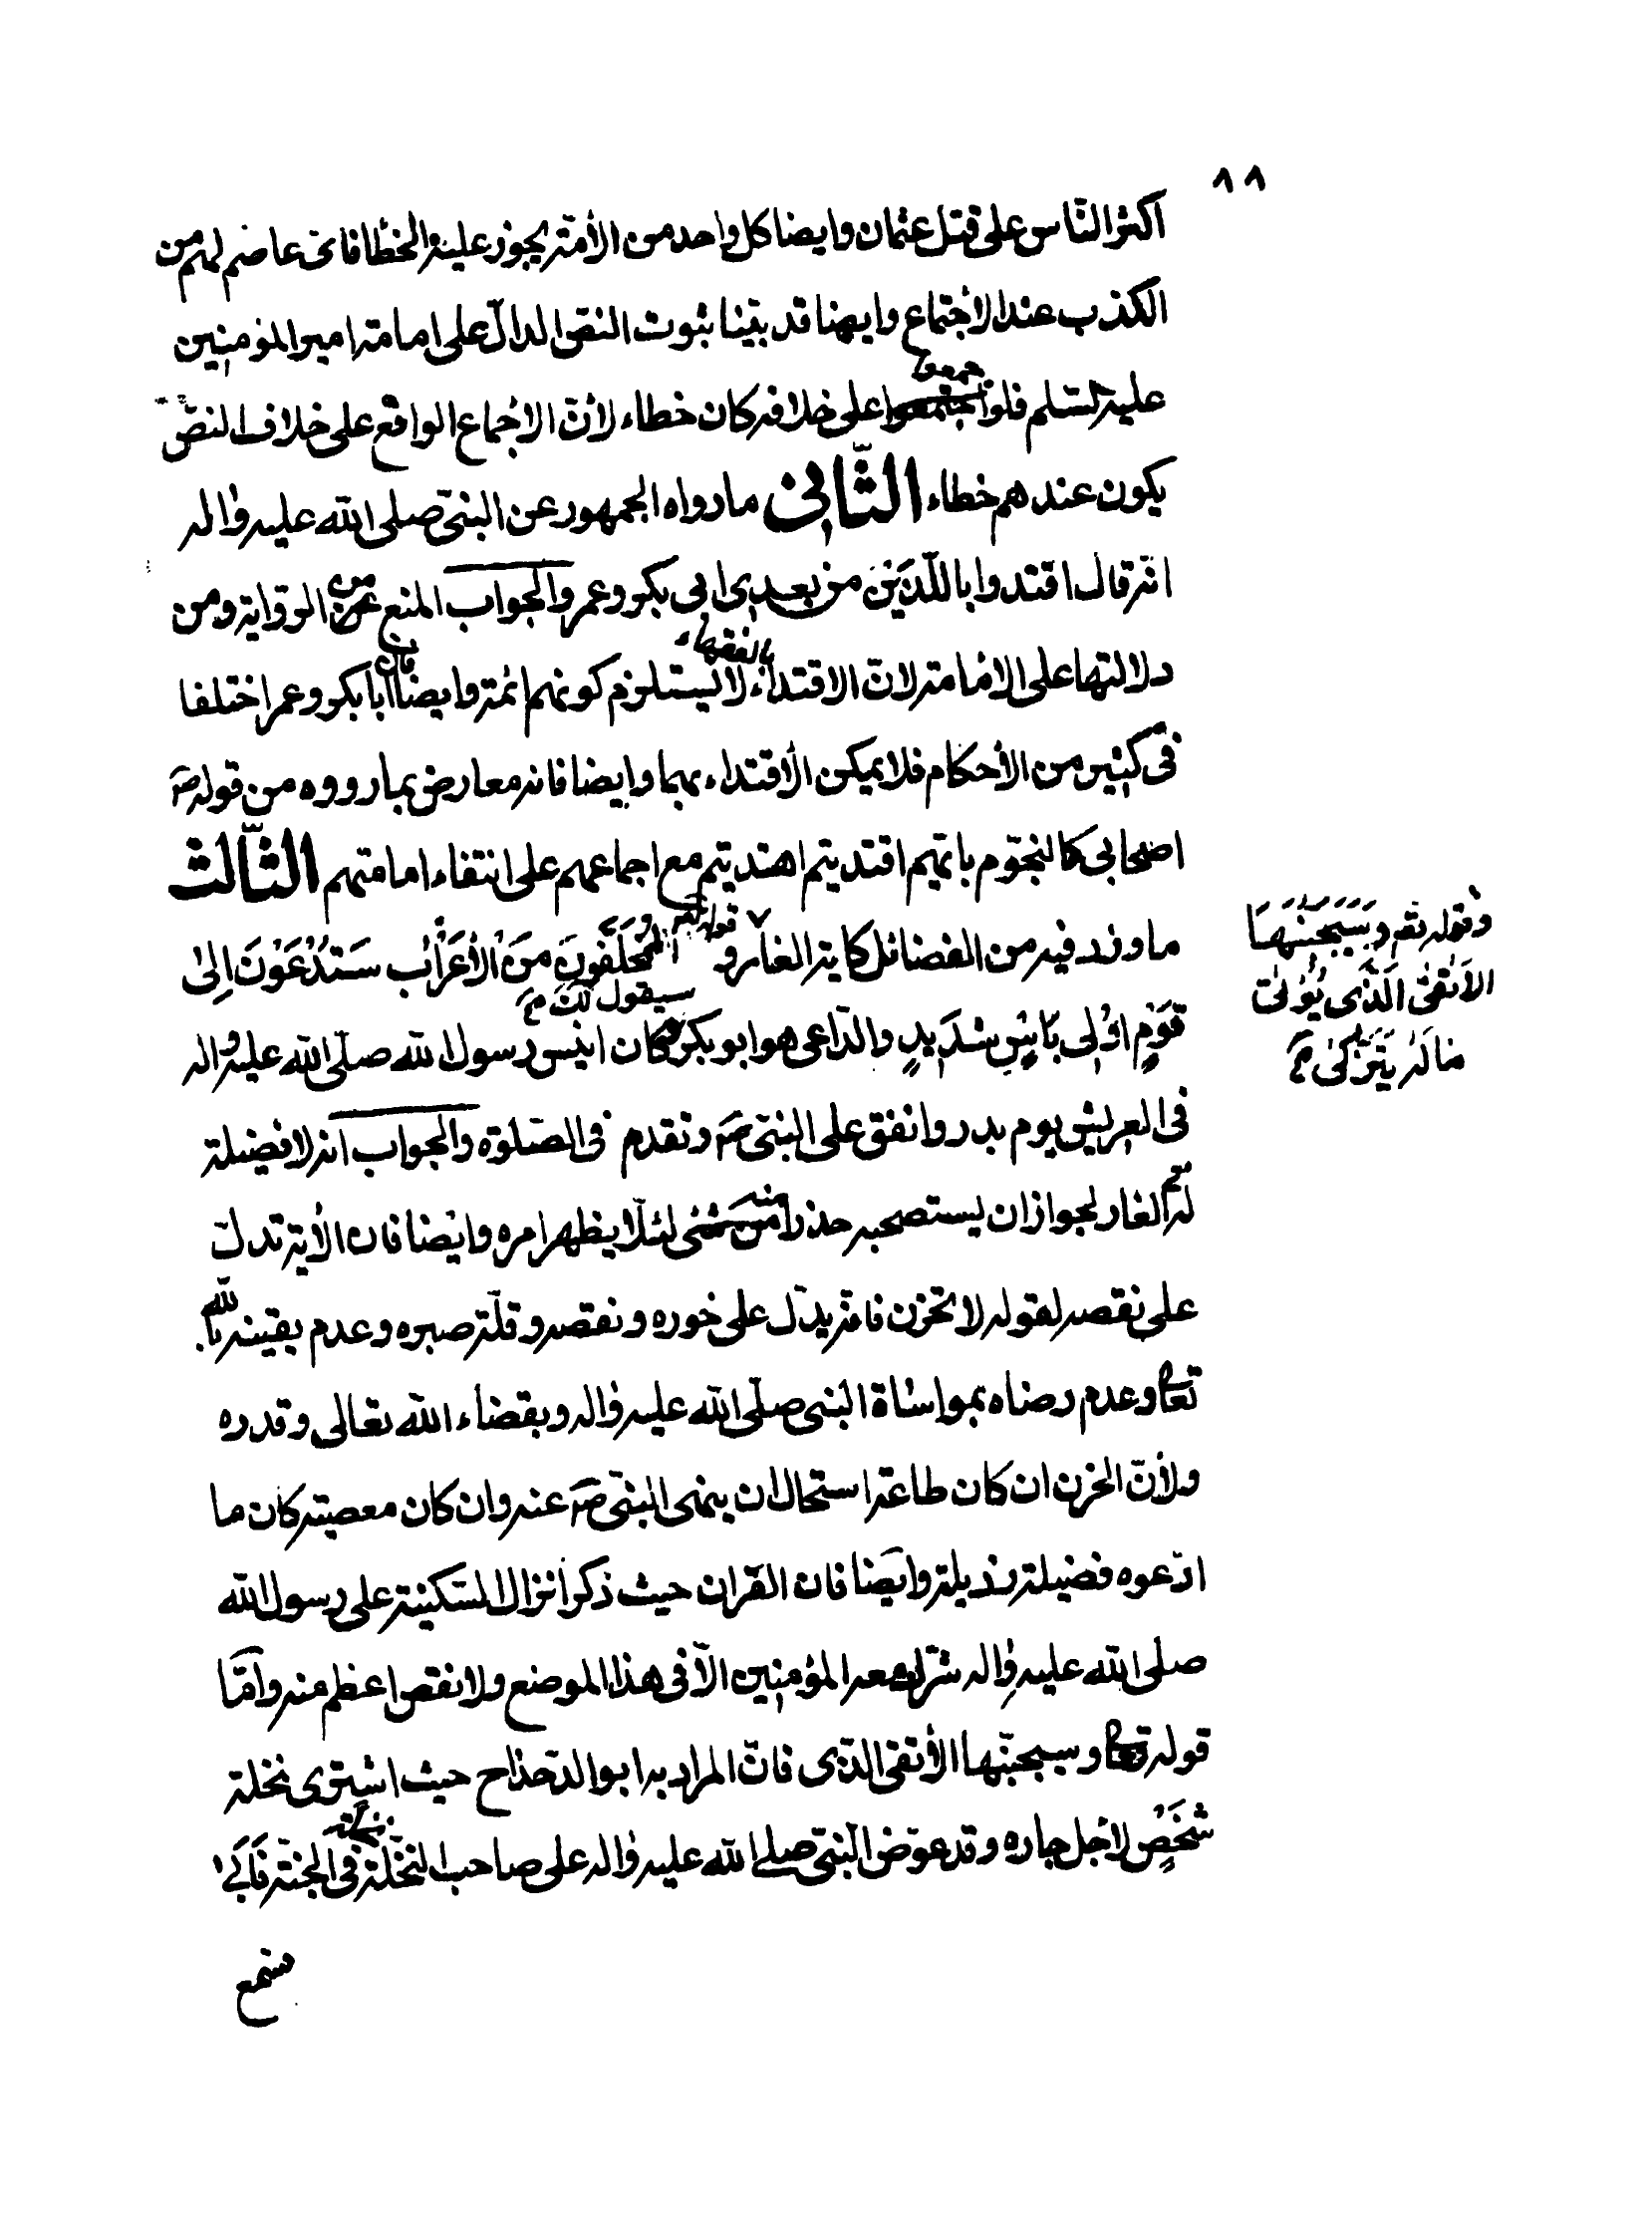 ٨٨
اكثر النّاس على قتل عثمان وايضا كل واحد من الأمة يجوز عليه الخطأ فاى عاصم لهم من
الكذب عند الاجتماع وايضا قد بينا ثبوت النص الدالّ على امامة امير المؤمنين
عليه السّلم فلو اجمعوا على خلافه كان خطاء لأنّ الاجماع الواقع على خلاف النصّ
يكون عندهم خطاء الثّانى ما رواه الجمهور عن النبىّ صلى الله عليه واله
انّه قال اقتدوا باللّذَين من بعدى ابى بكر وعمر والجواب المنع من الرواية ومن
دلالتها على الامامة لانّ الاقتداء بالفقهاء لا يستلزم كونهم ائمة وايضا فان ابا بكر وعمر اختلفا
فى كثير من الأحكام فلا يمكن الاقتداء بهما وايضا فانه معارض بما رووه من قوله ص
اصحابى كالنجوم بايّهم اقتديتم اهتديتم مع اجماعهم على انتفاء امامتهم الثّالث
ما ورد فيه من الفضائل كاية الغار و قوله تعالى
المُخَلَّفُونَ مِنَ الأَعْرَابِ سَتُدْعَوْنَ اِلىٰ
سيقول لك م
وقوله تعم وَسَيُجَنَّبُهَا
الاَتْقىَ الَّذى يُؤْتى
مَالَهُ يَتَزَكّى م
قَوْمٍ اُولى بَأسٍ شَدِيدٍ والدّاعى هو ابو بكر وكان انيس رسول الله صلّى الله عليه واله
فى العريش يوم بدر وانفق على النبىّ ص وتقدم فى الصّلوة والجواب انه لا فضيلة
له فى الغار لجواز ان يستصحبه حذرا منه لئلّا يظهر امره وايضا فان الأية تدلّ
على نقصه لقوله لا تحزن فانّه يدلّ على خوره ونقصه وقلّة صبره وعدم يقينه بالله
تعالى وعدم رضاه بمواساة النبى صلّى الله عليه واله وبقضاء الله تعالى وقدره
ولأنّ الحزن ان كان طاعة استحال ان ينهى النبىّ ص عنه وان كان معصية كان ما
ادّعوه فضيلة رذيلة وايضا فان القران حيث ذكر انزال السّكينة على رسول الله
صلى الله عليه واله شرك معه المؤمنين الّا فى هذا الموضع ولا نقص اعظم منه وامّا
قوله تعالى وسيجنّبها الأتقى الذى فانّ المراد به ابو الدّحداح حيث اشترى نخلة
شخصٍ لاجل جاره وقد عرض النبىّ صلى الله عليه واله على صاحب النخلة نخلة فى الجنّة فابى
فسمع